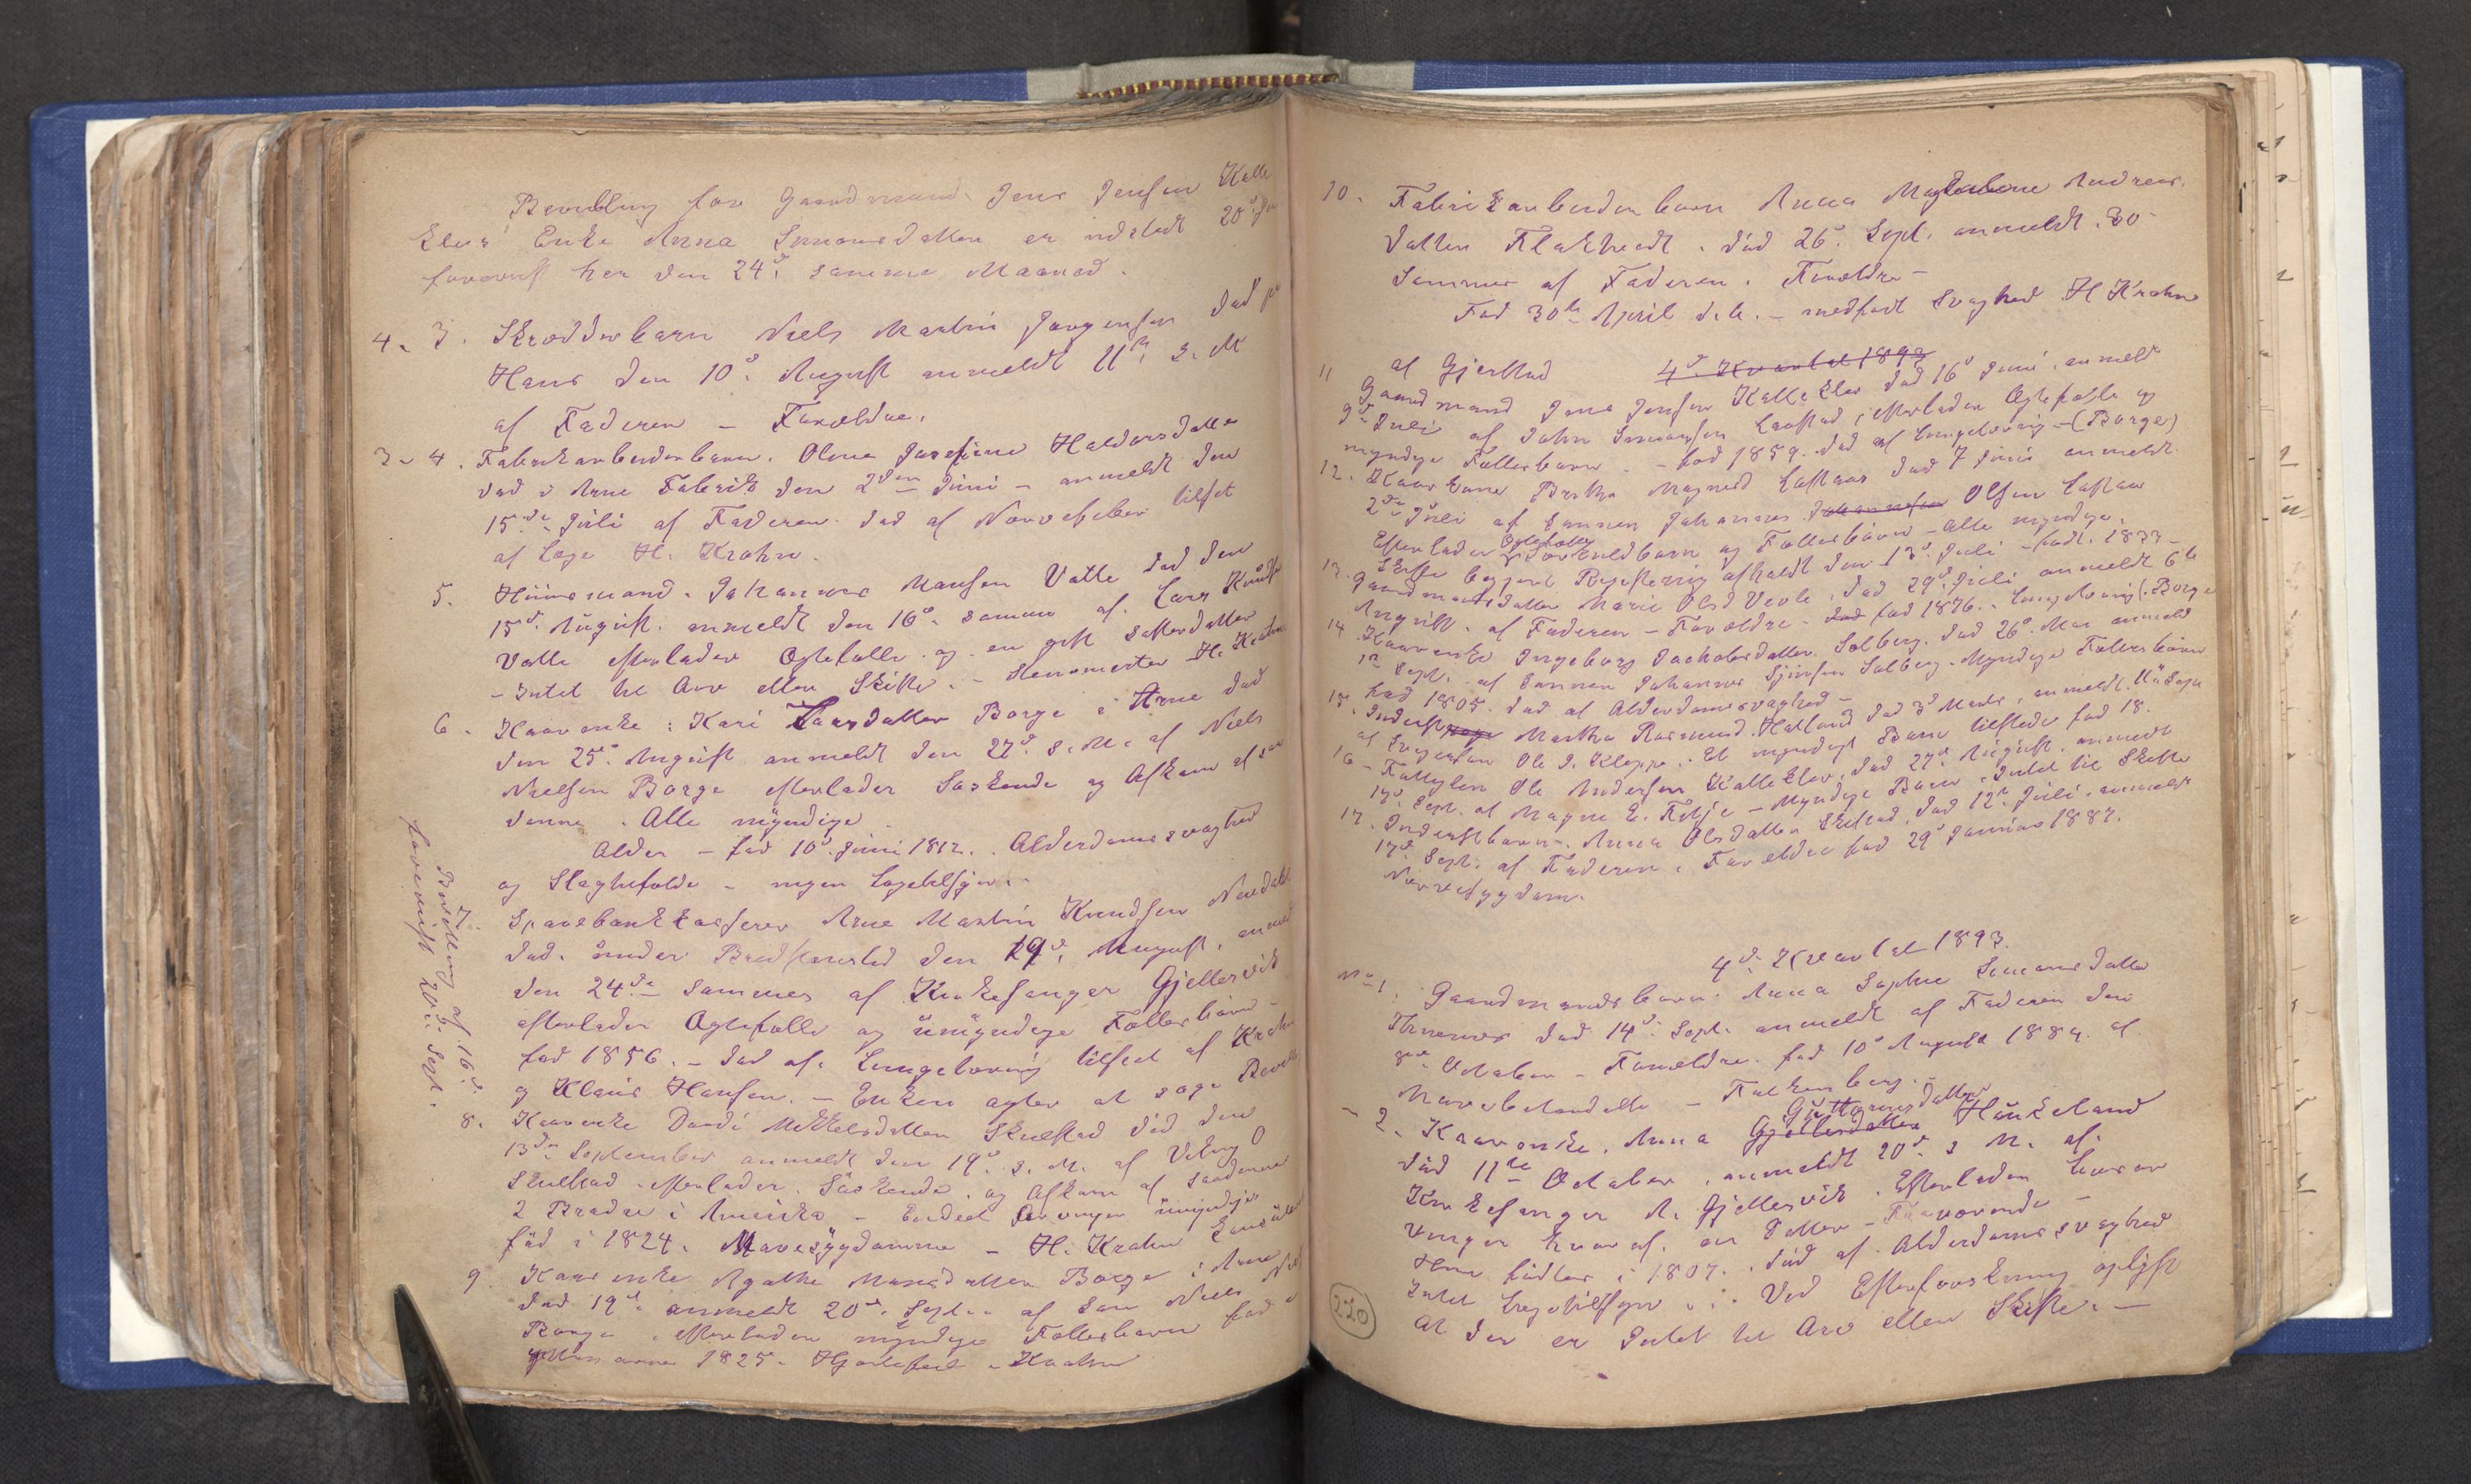 Bevilling for Gaardmand Jens Jensen Kalle
klev's Enke Anna Simonsdatter er udstedt 20de
forevist her den 24d. samme Maaned.
4. 3. Skrædderbarn Niels Martin Jørgensen død paa
Haus den 10d. August anmeldt 11te s. M
af Faderen - Forældre.
3 - 4. Fabrikarbeiderbarn. Olina Josefine Haldorsdatter
død i Arne Fabrik den 2den Juni - anmeldt den
15de Juli af Faderen. død af Nervefeber tilset
af Læge H. Krohn.
5. Huusmand. Johannes Monsen Valle død den
15d. August. anmeldt den 16d. samme af Lars Knudsen
Valle efterlader Ægtefælle og en gift Datter
- Intet til Arv eller Skifte. - H. Krohn
6. Kaarenke: Kari Larsdatter Borge i Arne død
den 25d. August anmeldt den 27d. s. M. af Niels
Nielsen Borge efterlader Søskende og Afkom af
denne. Alle myndige
Alder - fød 10d. Juni 1812. Alderdomssvaghed
og Slagtilfælde - ingen Lægetilsyn.
7. Sparebankkasserer Arne Martin Knudsen
død. under den 19d. August. anmeldt
den 24de sammes af Kirkesanger Gjellesvik
efterlader Ægtefælle og umyndige Fællesbørn -
fød 1856. - død af Lungetæring tilseet af Krohn
og Klaus Hansen. - Enken agter at søge Bevilling
Bevilling af 16d.
forevist 20d. Sept.
8. Kaarenke Dordi Mikkelsdatter Skulstad død den
13de September anmeldt den 19d. s. M. af O
Skulstad - efterlader Søskende og Afkom af saadanne
2 Brødre i Amerika - Endeel Arvinger umyndige
fød i 1824. Mavesygdomme - H. Krohn
9. Kaarenke Agathe Monsdatter Borge i Arne
død 19d. anmeldt 20de Septr. af Søn Niels
Borge. efterlader myndige Fællesbørn fød i
1825. Hjertefeil - Krohn
10. Fabrikarbeiderbarn Anna Magdalene Andreas.
datter Flaktvedt. død 26d. Sept. anmeldt. 30
Sammes af Faderen. Forældre -
Fød 30te April d. A. - medfødt Svaghed H Krohn
4d Kvartal 1893
11 af Gjerstad
Gaardmand Jens Jensen Kalleklev død 16d Juni, anmeldt
9de Juli af John Simonsen, efterlader Ægtefælle og
myndige Fællesbørn - fød 1859. død af Lungetæring - (Borge)
12. Kaarkone Brytha Magnesd Lastaar død 7 Juni anmeldt
2de Juli af Sønnen Johannes Johannesen Olsen Lastaar
Efterlader Ægtefælle Særkuldbarn og Fællesbørn - Alle myndige.
Skifte begjært Registrering afholdt den 13d. Juli - født. 1833 -
13. Gaardmandsdatter Marie Olsd Vevle, død 29d. Juli anmeldt 6te
August. af Faderen - Forældre - død fød 1876. Lungetæring (Borge
14. Kaarenke Ingeborg Jacobsdatter Solberg. død 26d. Mai anmeldt
1n Sept. af Sønnen Johannes Solberg - Myndige Fællesbørn
fød 1805. død af Alderdomssvaghed -
15. Inderst Martha Rasmusd. Hatland død 3d Marts, anmeldt. 11d Sept
af Svigersøn Ole J. Kleppe. - Et myndigt Barn tilstede fød 18.
16 - Fattiglem Ole Andersen Kalleklev, død 27d August, anmeldt
17d. Sept. af Magne E. Titje - Myndige Børn. Intet til Skifte
17. Inderstbarn. Anna Olsdatter Skulstad, død 12te Juli, anmeldt
17d. Sept. af Faderen, Forældre fød 29d Januar 1887.
Nervesygdom.
4d. Kvartal 1893.
No 1. Gaardmandsbarn. Anna Sophie Simonsdatter
Thunes død 14d. Sept. anmeldt af Faderen den
9de October - Forældre. fød 10d August 1889. af
Mavebetændelse - Falkenberg.
- 2. Kaarenke, Anna Gjellesdatter Guttormsdatter Haukeland
død 11te October, anmeldt 20d. s M. af.
Kirkesanger A. Gjellesvik. Efterlader Livsar
vinger hvoraf en Datter - Fraværende -
Hun fødtes i 1807. død af Alderdomssvaghed
Intet Lægetilsyn. Ved Efterforskning oplyst
at der er Intet til Arv eller Skifte. -
220